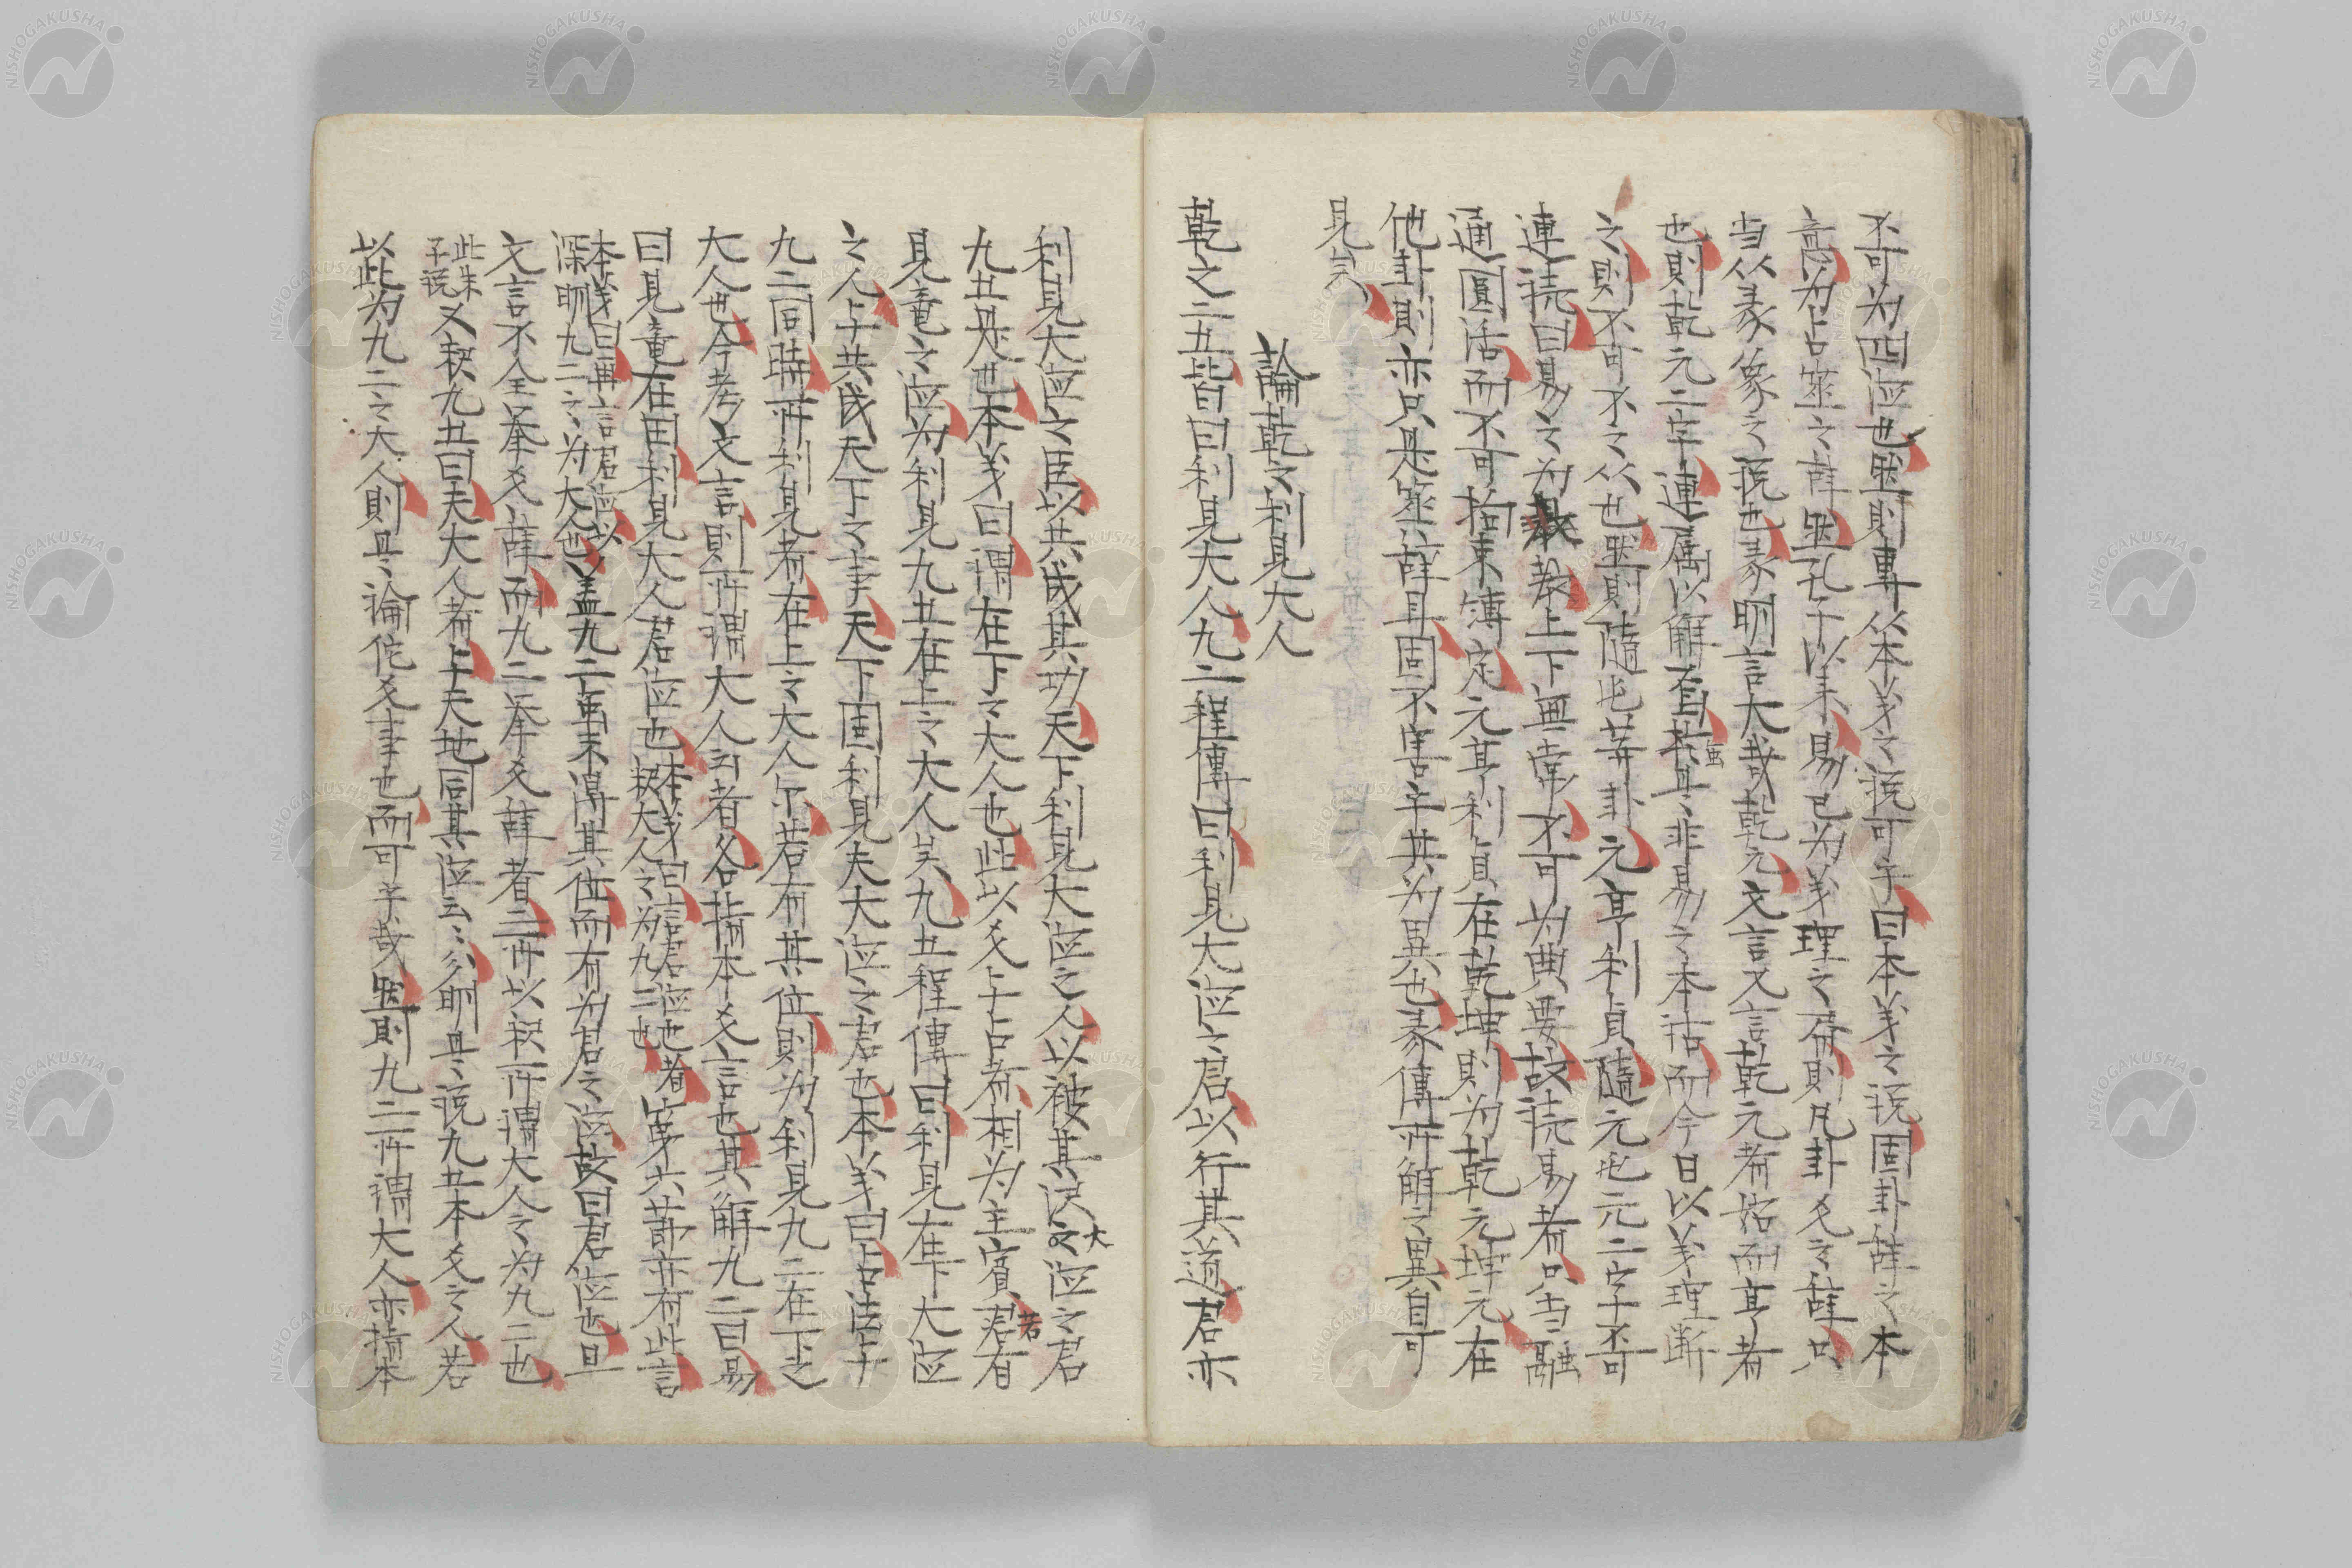 不可为四德也然則專从本義之說可乎曰本義之說固卦辞之本
意为占筮之辞然孔子以来易已为義理之府則凡卦爻之辞只
当从彖象之說也彖明言大哉乾元文言又言乾元者始而亨者
也則乾元二字連属以解者且非易之本旨而今日以義理断
之則不可不之从也然則隨屯等卦元亨利貞隨元屯元二字不可
連読曰易之为教上下無常不可为典要故読易者只当融
通圓活而不可拘束慱定元亨利貞在乾坤則为乾元坤元在
他卦則亦只是筮辞耳固不害乎其为異也彖傳所解之異自可
見矣
論乾之利見大人
乾之二五皆曰利見大人九二程傳曰利見大德之君以行其道君亦
利見大德之臣以共成其功天下利見大德之人以被其沢大德之君
九五是也本義曰謂在下之大人也此以爻与占者相为主賓若有
見竜之德为利見九五在上之大人矣九五程傳曰利見在下大德
之人与共成天下之事天下固利見夫大德之君也本義曰占法与
九二同時所利見者在上之大人尓若有其位則为利見九二在下之
大人也今考文言則所謂大人云者各指本爻言也其解九二曰易
曰見竜在田利見大人君德也本義曰言君德也者釈大人之为九二也第六節亦有此言
本義曰再言君德以深明九二之为大人也盖九二虽未得其位而有为君之德故曰君德也且
文言不全挙爻辞而九二挙爻辞者二所以釈所謂大人之为九二也
此朱子説又釈九五曰夫大人者与天地同其德云〻分明且〻說九五本爻之人若
以此为九二之大人則且〻論佗爻事也而可乎哉然則九二所謂大人亦指本